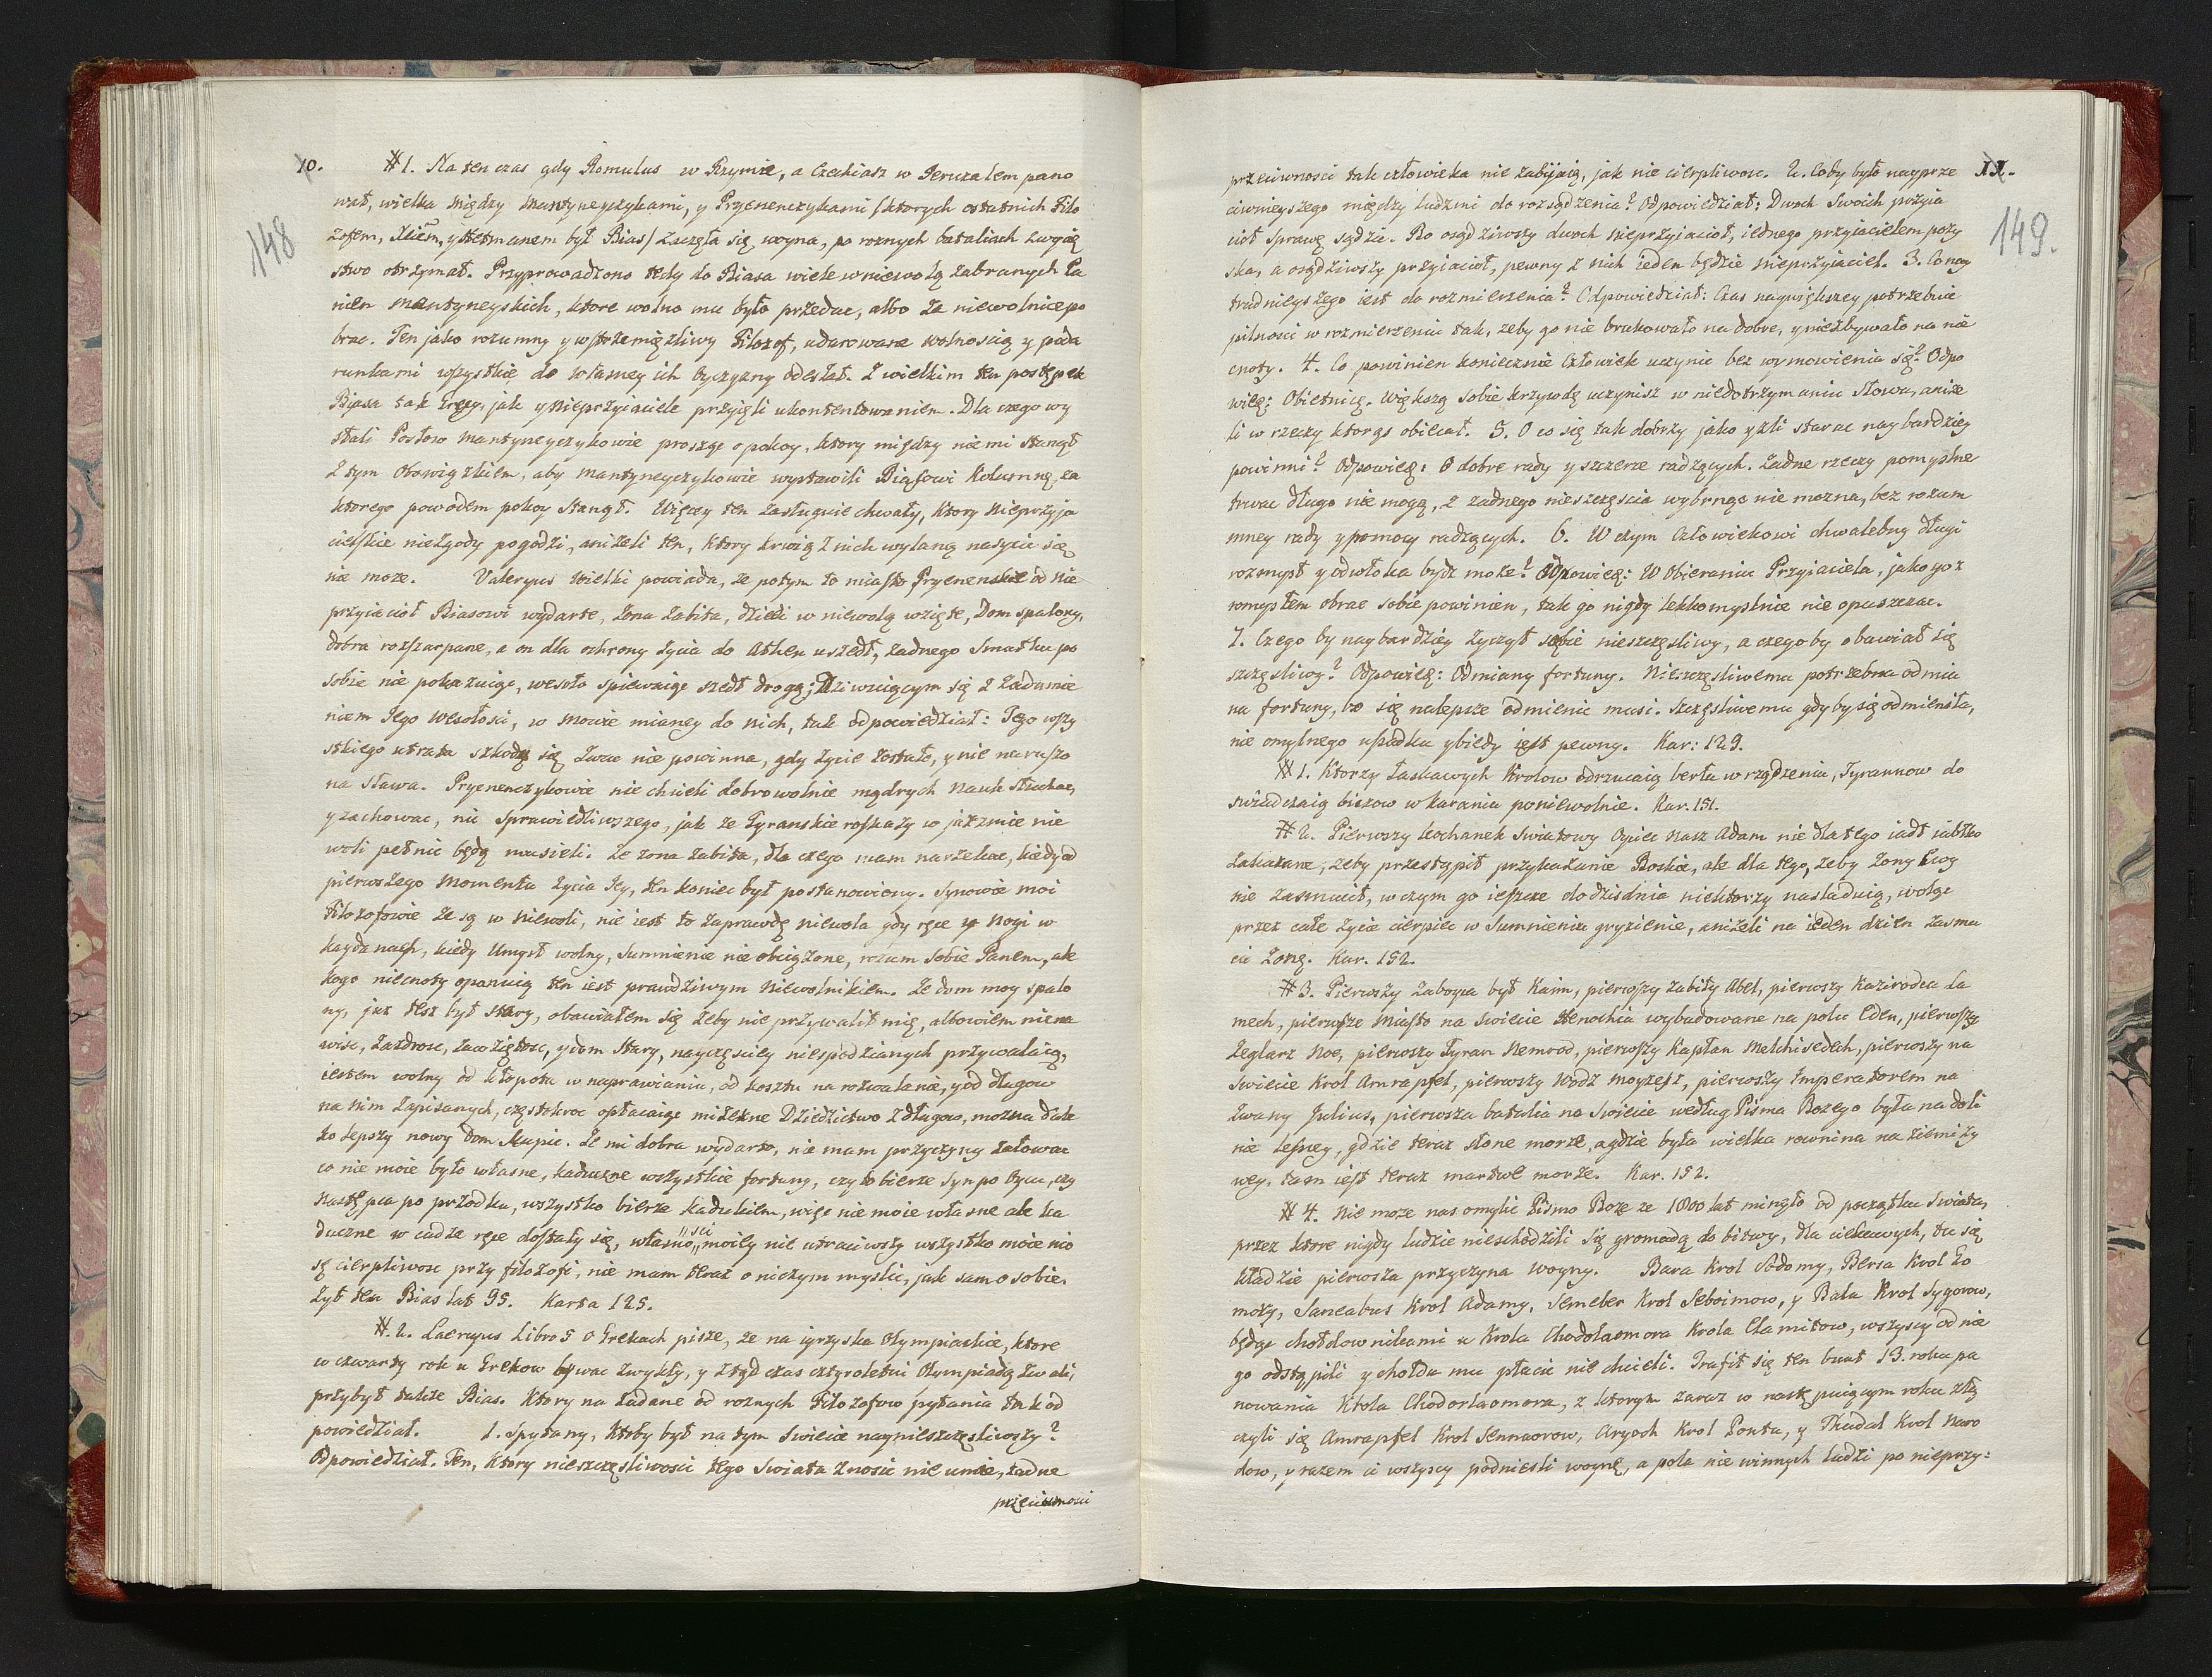 10.
148
# 1. Na ten czas gdy Romulus w Rzymie, a Ezechiasz w Jeruzalem pano
wał, wielka między Mantyneyczykami, y Pryenenczykami /ktorych ostatnich Filo
zofem, Xciem, y Hetmanem był Bias/ zaczęła się woyna, po roznych bataliach zwycię
stwo otrzymał. Przyprowadzono tedy do Biasa wiele w niewolą zabranych Pa
nien Mantyneyskich, ktore wolno mu było przedac, albo za niewolnice po
brac. Ten jako rozumny y wstrzemięzliwy Filozof, udarowane wolnoscią y poda
runkami wszystkie do własney ich Oyczyzny odesłał. Z wielkim ten postępek
Biasa tak Grecy, jak y Nieprzyiaciele przyjęli ukontentowaniem. Dla czego wy
słali Posłow Mantyneyczykowie prosząc o pokoy, ktory między niemi stanął
z tym Obowiązkiem, aby Mantyneyczykowie wystawili Biasowi Kolumnę, za
ktorego powodem pokoy stanął. Więcey ten zasługuie chwały, ktory Nieprzyja
cielskie niezgody pogodzi, anizeli ten, ktory krwią z nich wylaną nasycic się
nie moze. Valeryus Wielki powiada, ze potym to miasto Pryenenskie od Nie
przyiacioł Biasowi wydarte, Zona zabita, dzieci w niewolą wzięte, Dom spalony,
dobra rozszarpane, a on dla ochrony zycia do Athen uszedł, zadnego smutku po
sobie nie pokazuiąc, wesoło spiewaiąc szedł drogą; Dziwuiącym się z zadumie
niem Jego wesołosci, w mowie mianey do nich, tak odpowiedział: Tego wszy
stkiego utrata szkodą się zwac nie powinna, gdy zycie zostało, y nie narusze
na sława. Pryenenczykowie nie chcieli dobrowolnie mądrych Nauk słuchac,
y zachowac, nic sprawiedliwszego, jak ze Tyranskie roskazy w jarzmie nie
woli pełnic będą musieli. Ze zona zabita, dla czego mam narzekac, kiedy od
pierwszego momentu zycia Jey, ten koniec był postanowiony. Synowie moi
Filozofowie ze są w Niewoli, nie iest to zaprawdę niewola gdy ręce y Nogi w
kaydanach, kiedy Umysł wolny, sumnienie nie obciązone, rozum sobie Panem, ale
kogo niecnoty opanuią ten iest prawdziwym Niewolnikiem. Ze dom moy spalo
ny, juz tesz był stary, obawiałem się zeby nie przywalił mię, albowiem niena
wisc, zazdrosc, zawziętosc, y dom stary, nayczęsciey niespodzianych przywalaią,
iestem wolny od kłopotu w naprawianiu, od kosztu na rozwalenie, y od długow
na nim zapisanych, częstokroc opłacaiąc mizerne Dziedzictwo z długow, mozna dale
ko lepszy nowy Dom kupic. Ze mi dobra wydarto, nie mam przyczyny załowac
co nie moie było własne, kaduczne wszystkie fortuny, czy to bierze Syn po Oycu, czy
Nastempca po przodku, wszystko bierze kadukiem, więc nie moie własne ale ka
duczne w cudze ręce dostały się, własnosci moiey nie utraciwszy wszystko moie nio
sę cierpliwosc przy filozofi, nie mam teraz o niczym myslic, jak sam o sobie.
Zył ten Bias lat 95. Karta 125.
#. 2. Laeryus Libro 5 o Grekach pisze, ze na igrzyska Olympiackie, ktore
w czwarty rok u Grekow bywac zwykły, y ztąd czas czteroletni Olympiadą zwali,
przybył takze Bias. Ktory na zadane od roznych Filozofow pytania tak od
powiedział. 1. Spytany, ktoby był na tym Swiecie naynieszczęsliwszy?
Odpowiedział. Ten, ktory nieszczęsliwosci tego Swiata znosic nie umie, zadne
przeciwnosci
11.
149.
przeciwnosci tak człowieka nie zabijaią, jak nie cierpliwosc. 2. Coby było nayprze
ciwnieyszego między ludzmi do rozsądzenia? Odpowiedział: Dwoch Swoich przyia
cioł sprawę sądzic. Bo osądziwszy dwoch nieprzyiacioł, iednego przyiacielem pozy
ska, a osądziwszy przyiacioł, pewny z nich ieden będzie nieprzyiaciel. 3. Co nay
trudnieyszego iest do rozmierzenia? Odpowiedział: Czas naywiększey potrzebuie
pilnosci w rozmierzeniu tak, zeby go nie brakowało na dobre, y nie zbywało na nie
cnoty. 4. Co powinien koniecznie Człowiek uczynic bez wymowienia się? Odpo
wiez: Obietnicę. Większą sobie krzywdę uczynisz w niedotrzymaniu słowa, anize
li w rzeczy ktorąs obiecał. 5. O co się tak dobrzy jako y zli starac naybardziey
powinni? Odpowiez: O dobre rady y szczerze radzących. Zadne rzeczy pomyslne
trwac długo nie mogą, z zadnego nieszczęscia wybrnąc nie mozna, bez rozum
mney rady y pomocy radzących. 6. W czym Człowiekowi chwalebny długi
rozmysł y odwłoka bydz moze? Odpowiez: W Obieraniu Przyiaciela, jako go z
romysłem obrac sobie powinien, tak go nigdy lekkomyslnie nie opuszczac.
7. Czego by naybardziey zyczył sobie nieszczęsliwy, a czego by obawiał się
szczęsliwy? Odpowiez: Odmiany fortuny. Nieszczęsliwemu potrzebna odmia
na fortuny, bo się nalepsze odmienic musi. Szczęsliwemu gdyby się odmieniła,
nie omylnego upadku y biedy iest pewny. Kar: 129.
# 1. Ktorzy łaskawych Krolow odrzucaią berła w rządzeniu, Tyrannow do
swiadczaią biczow w karaniu poniewolnie. Kar. 151.
# 2. Pierwszy kochanek Swiatowy Oyciec Nasz Adam nie dlatego iadł iabłko
zakazane, zeby przestąpił przykazanie Boskie, ale dla tego, zeby zony swey
nie zasmucił, w czym go ieszcze do dzisdnia niektorzy nasladuią, woląc
przez całe zycie cierpiec w Sumnieniu gryzienie, anizeli na ieden dzien zasmu
cic zonę. Kar. 152.
# 3. Pierwszy zaboyca był Kaim, pierwszy zabity Abel, pierwszy Kazirodca La
mech, pierwsze Miasto na swiecie Henochia wybudowane na polu Eden, pierwszy
Zeglarz Noe, pierwszy Tyran Nemrod, pierwszy Kapłan Melchisedech, pierwszy na
Swiecie Krol Amrapfel, pierwszy Wodz Moyzesz, pierwszy Imperatorem na
zwany Julius, pierwsza batalia na Swiecie według Pisma Bozego była na doli
nie Lesney, gdzie teraz słone morze, a gdzie była wielka rownina na ziemi zy
wey, tam iest teraz martwe morze. Kar. 152.
# 4. Nie moze nas omylic Pismo Boze ze 1800 lat mineło od początku swiata,
przez ktore nigdy ludzie nieschodzili się gromadą do bitwy, dla ciekawych, tu się
kładzie pierwsza przyczyna Woyny. Bara Krol Sodomy, Bersa Krol Go
mory, Saneabus Krol Adamy, Semeber Krol Seboimow, y Bala Krol Sygorow,
będąc chołdownikami u Krola Chodolaomora Krola Elamitow, wszyscy od nie
go odstąpili y chołdu mu płacic nie chcieli. Trafił się ten bunt 13. roku pa
nowania Krola Chodorlaomora, z ktorym zaraz w następuiącym roku złą
czyli się Amrapfel Krol Sennaorow, Aryoch Krol Pontu, y Thadal Krol Naro
dow, y razem ci wszyscy podniesli woynę, a pola nie winnych ludzi po nieprzy: